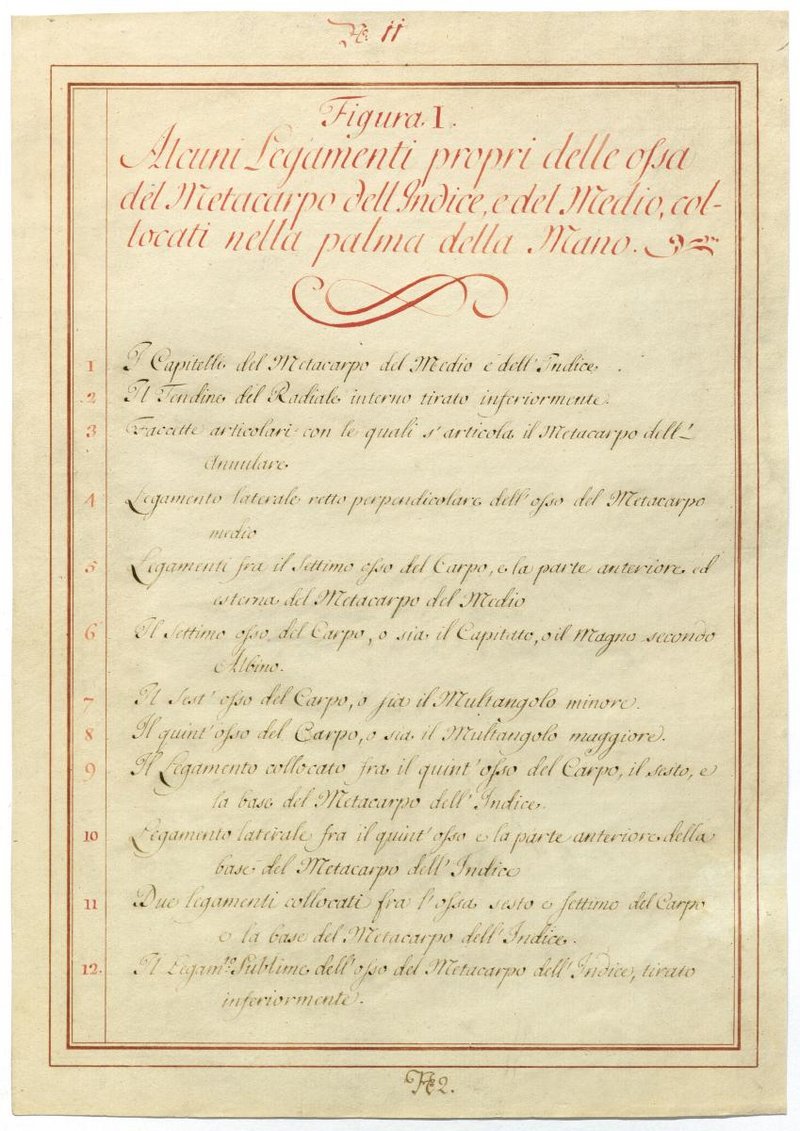 No: 11
Figura I.
Alcuni Legamenti propri delle ossa
del Metacarpo dell'Indice, e del Medio, col-
locati nella palma della Mano.
1 I Capitelli del Metacarpo del Medio e dell'Indice.
2 Il Tendine del Radiale interno tirato inferiormente.
3 Faccette articolari con le quali s'articola il Metacarpo dell'
Annulare
4 Legamento laterale retto perpendicolare dell'osso del Metacarpo
medio
5 Legamenti fra il settimo osso del Carpo, e la parte anteriore ed
esterna del Metacarpo del Medio
6 Il settimo osso del Carpo, o sia il Capitato, o il Magno secondo
Albino.
7 Il Sest'osso del Carpo, o sia il Multangolo minore.
8 Il quint'osso del Carpo, o sia il Multangolo maggiore.
9 Il Legamento collocato fra il quint'osso del Carpo, il sesto, e
la base del Metacarpo dell'Indice.
10 Legamento laterale fra il quint'osso e la parte anteriore della
base del Metacarpo dell'Indice
11 Due legamenti collocati fra l'ossa sesto e settimo del Carpo
e la base del Metacarpo dell'Indice.
12. Il Legam.to Sublime dell'osso del Metacarpo dell'Indice, tirato
inferiormente.
2.